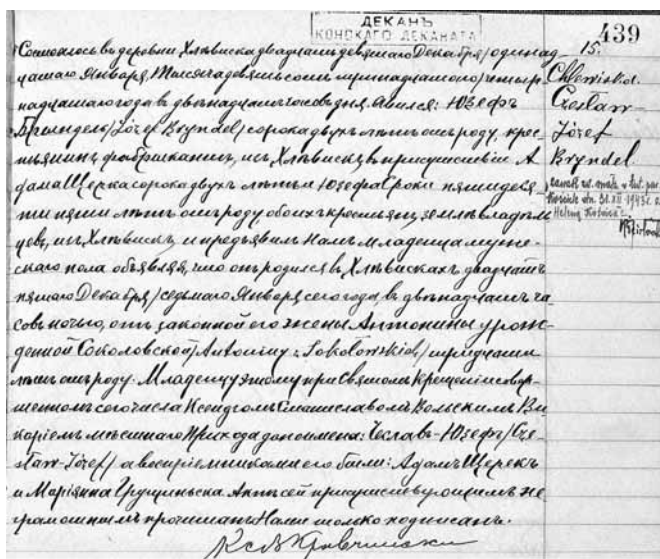 ДЕКАНЪ
КОНСКАГО ДЕКАНАТА
439
Состоялось въ деревни Хлѣвиска двадцать девятаго Декабря / одинад-
цатаго Января, Тысяча девятьсотъ тринадцатаго / четыр-
надцатаго года въ двѣнадцать часовъ дня. Явился: Юзефъ
Брындель / Józef Bryndel / сорока двухъ лѣтъ отъ роду, крес-
тьянинъ фабрикантъ, изъ Хлѣвискъ, въ присутствіи А
дама Щерка сорока двухъ лѣтъ и Юзефа Сроки пятидеся
ти пяти лѣтъ отъ роду обоихъ крестьянъ, земле владѣль
цевъ, изъ Хлѣвискъ и предъявилъ Намъ Младенца муже-
скаго пола объявляя, что онъ родился въ Хлѣвискахъ двадцать
пятаго Декабря / седьмаго Января сего года, въ двѣнадцать ча
совъ ночью, отъ законной его жены Антонины урож-
денной Соколовской / Antoniny z Sokołowskich / тридцати
лѣтъ отъ роду. Младенцу этому при Святомъ Крещеніи совер-
шенномъ сего числа Ксендзомъ Станиславомъ Вольскимъ Ви
каріемъ мѣстнаго Прихода дано имена: Чеславъ-Юзефъ / Cze-
sław-Józef / а воспріемниками его были: Адамъ Щерекъ
и Маріянна Грущиньска. Актъ сей присутствующимъ не
грамотнымъ прочитанъ Нами только подписанъ.
15.
Chlewiska.
Czesław
Józef
Bryndel